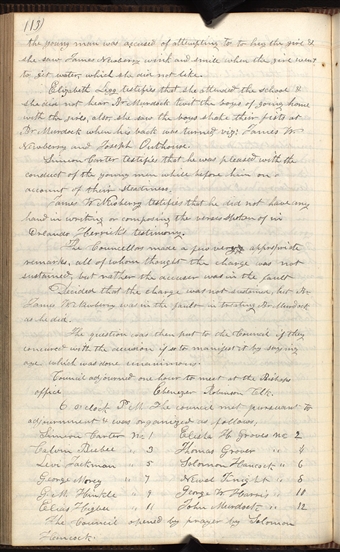 113)
the young man was accused of attempting to to hug the girl &
she saw James Newberry wink and smile when the girl went
to get water, which she did not like.
Elizabeth testifies that she attended the school &
she did not hear Dr Murdock twit the boys of going home
with the girls, also, she saw the boys shake their fists at
Dr Murdock when his back was turned viz: James W
Newberry and Joseph Outhouse.
Simeon Carter testifies that he was pleased with the
conduct of the young men while before him on
account of their
James W Newberry testifies that he did not have any
hand in writing or composing the verses spoken of in
Orlando Herrick's testimony.
The Councellors made a few very appropriate
remarks, all of whom thought the charge was not
sustained, but rather the accuser was in the fault
Decided that the charge was not sustained, but Br
James W. Newberry was in the fault in treating Dr Murdock
as he did.
The question was then put to the Council if they
concurred with the decision if so to manifest it by saying
aye which was done unanimous.
Council adjourned one hour to meet at the Bishops
office Ebenezer Robinson Clk.
6 o'clock P.M. The council met pursuant to
adjournment & was organized as follows,
Simeon Carter No. 1 Elisha H. Groves No 2
Calvin Beebee " 3 Thomas Grover " 4
Levi Jackman " 5 Solomon Hancock " 6
George Morey " 7 Newel Knight " 8
G. M. Hinkle " 9 George W. Harris " 10
Elias Higbee " 11 John Murdock " 12
The Council opened by prayer by Solomon
Hancock.